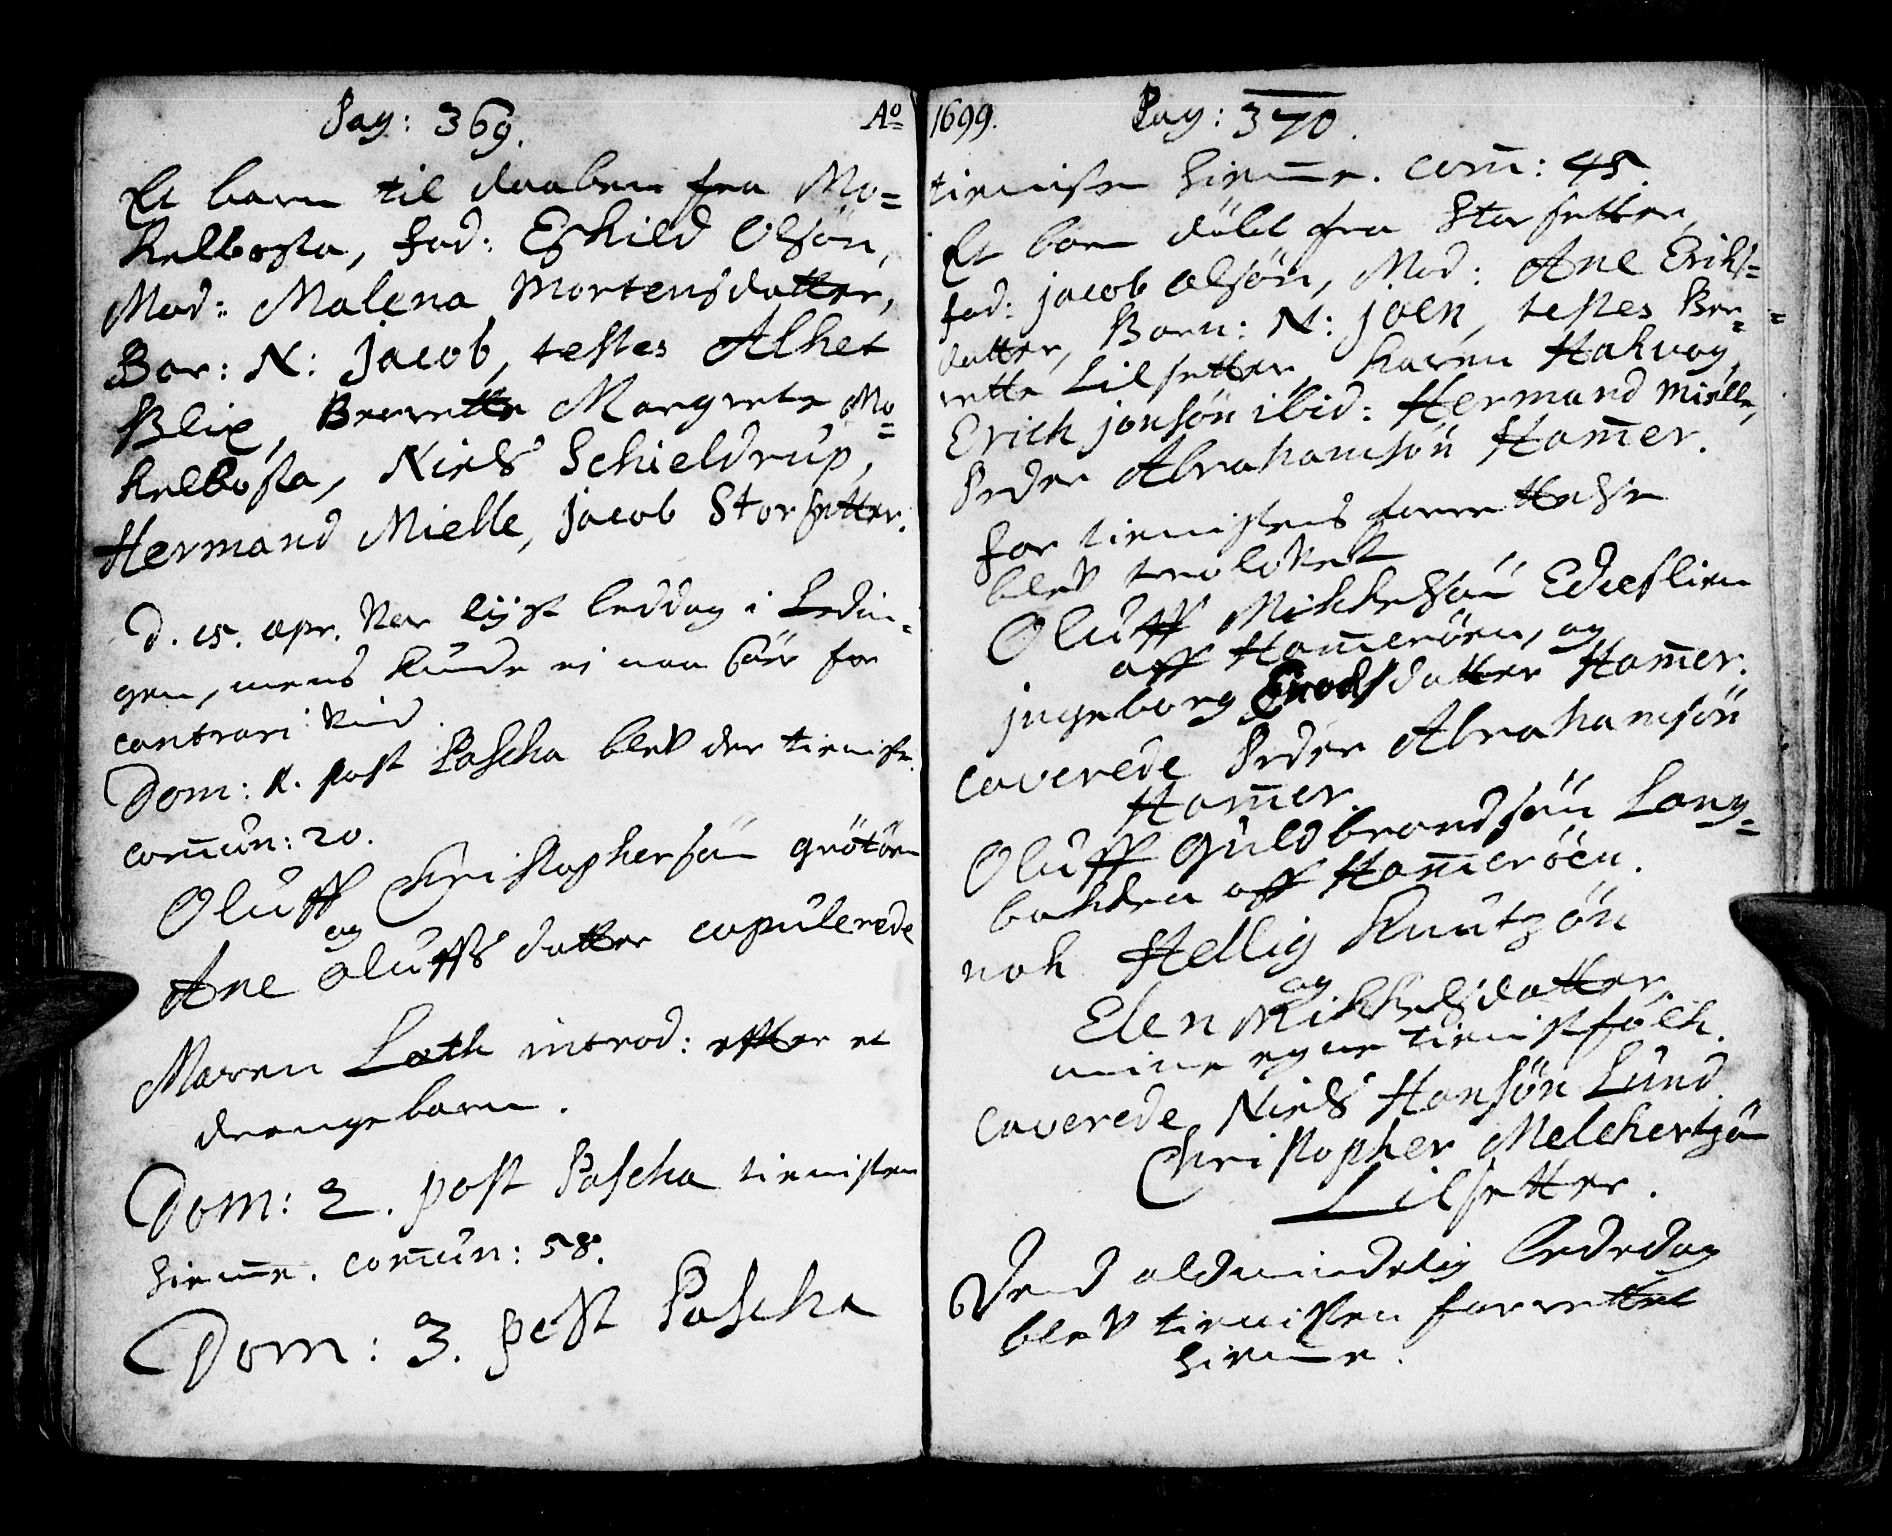 Pag: 369.
Et barn til daaben fra Mo=
kelbosta, fad: Eskild Olsön,
Mod: Malena Mortensdatter,
Bar: N: Jacob, testes Alhet
Blix, Berrette Margrete Mo=
kelbosta, Niels Schieldrup,
Hermand Mielle, Jacob Storsetter.
D. 15. apr. var lÿst beddag i Lødin=
gen, mens kunde ej naa for
contrari vind.
Dom: 1. post Pascha blev der tienist.
com̅un: 20.
Oluff Christophersön grötöen
og
Ane Oluffs datter copulerede
Maren Loth introd: effter et
drengebarn.
Dom: 2. post Pascha tienisten
hiem̅e. com̅un: 58.
Dom: 3. post Pascha
Ao 1699. Pag: 370.
tienisten hiem̅e. com̅: 45.
Et barn döbt fra Storsetter,
fad: Jacob olsön, Mod: Ane Eriks=
datter, Barn: N: Joen, testes Ber=
rette Lilsetter, Karen Hakvog,
Erich jonsön ibid: Hermand Mielle,
Peder Abrahamsön Ham̅er.
for tienistens forrettelse
blev trolovet
Oluff Mikkelsön
aff Ham̅eröen, og
Ingeborg datter Ham̅er.
caverede Peder Abrahamsön
Ham̅er.
Oluff Guldbrandsön Lang=
bakken aff Ham̅eröen.
nok Hellig Knutzön
og
Elen Mikkelsdatter,
mine egne tienistfolch.
caverede Niels Hansön Lund
Christopher Melchertzön
Lilsetter.
Dend aldmindelig Bededag
blev tienisten forrettet
hiem̅e.